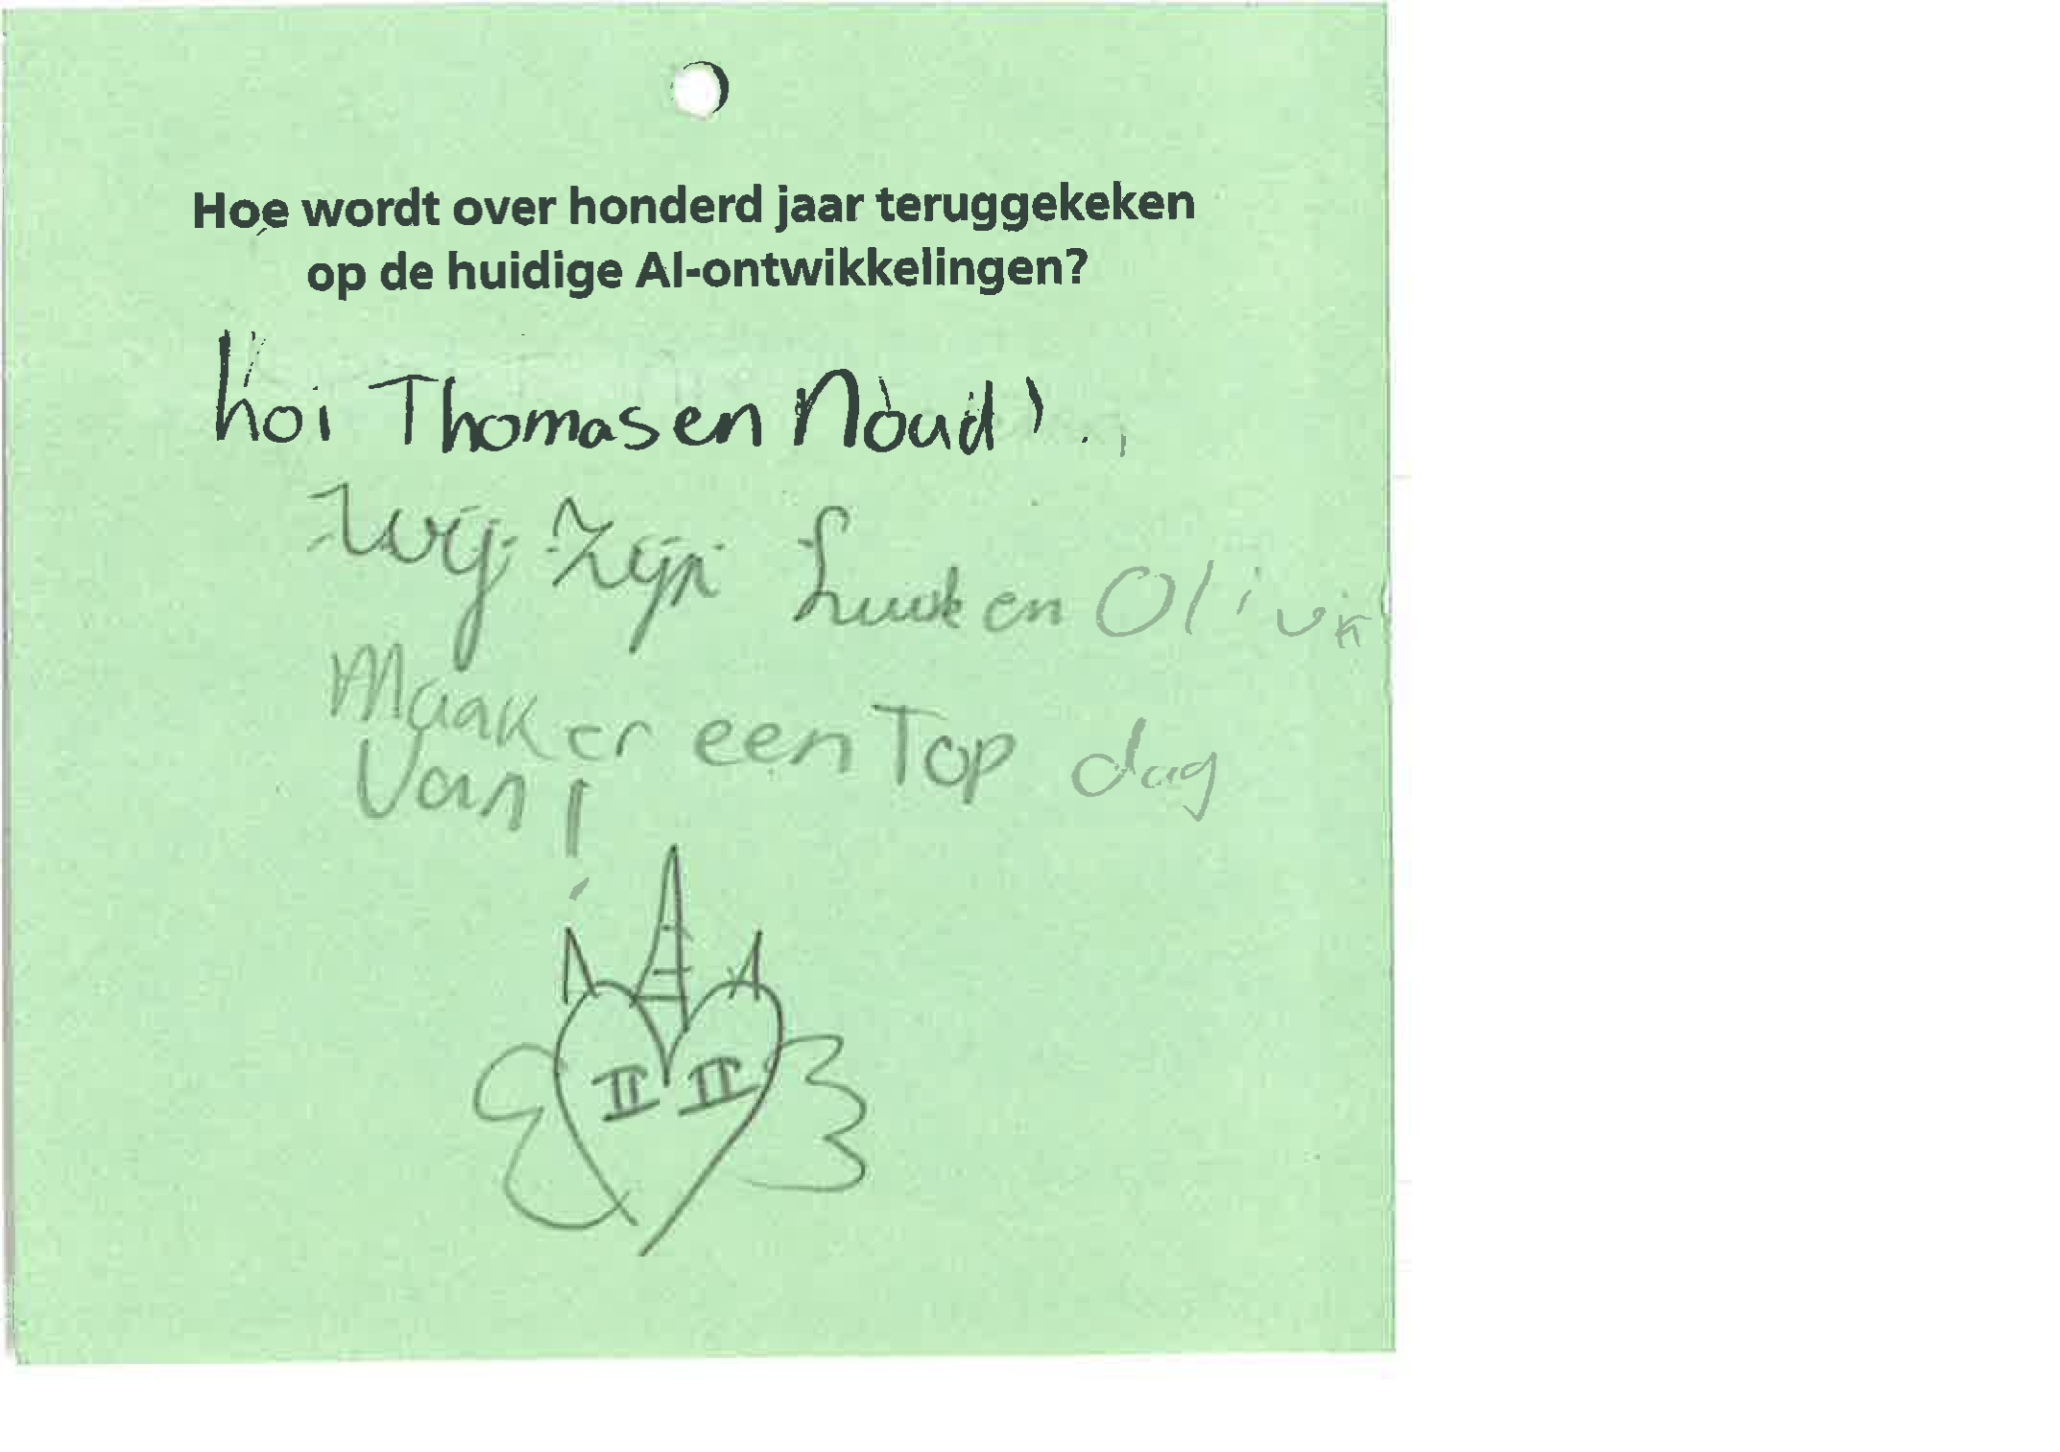 Hoe wordt over honderd jaar teruggekeken
op de huidige AI-ontwikkelingen?
hoi Thomas en Noud!
Wij zijn Luuk en
Maak er een Top dag
Van!